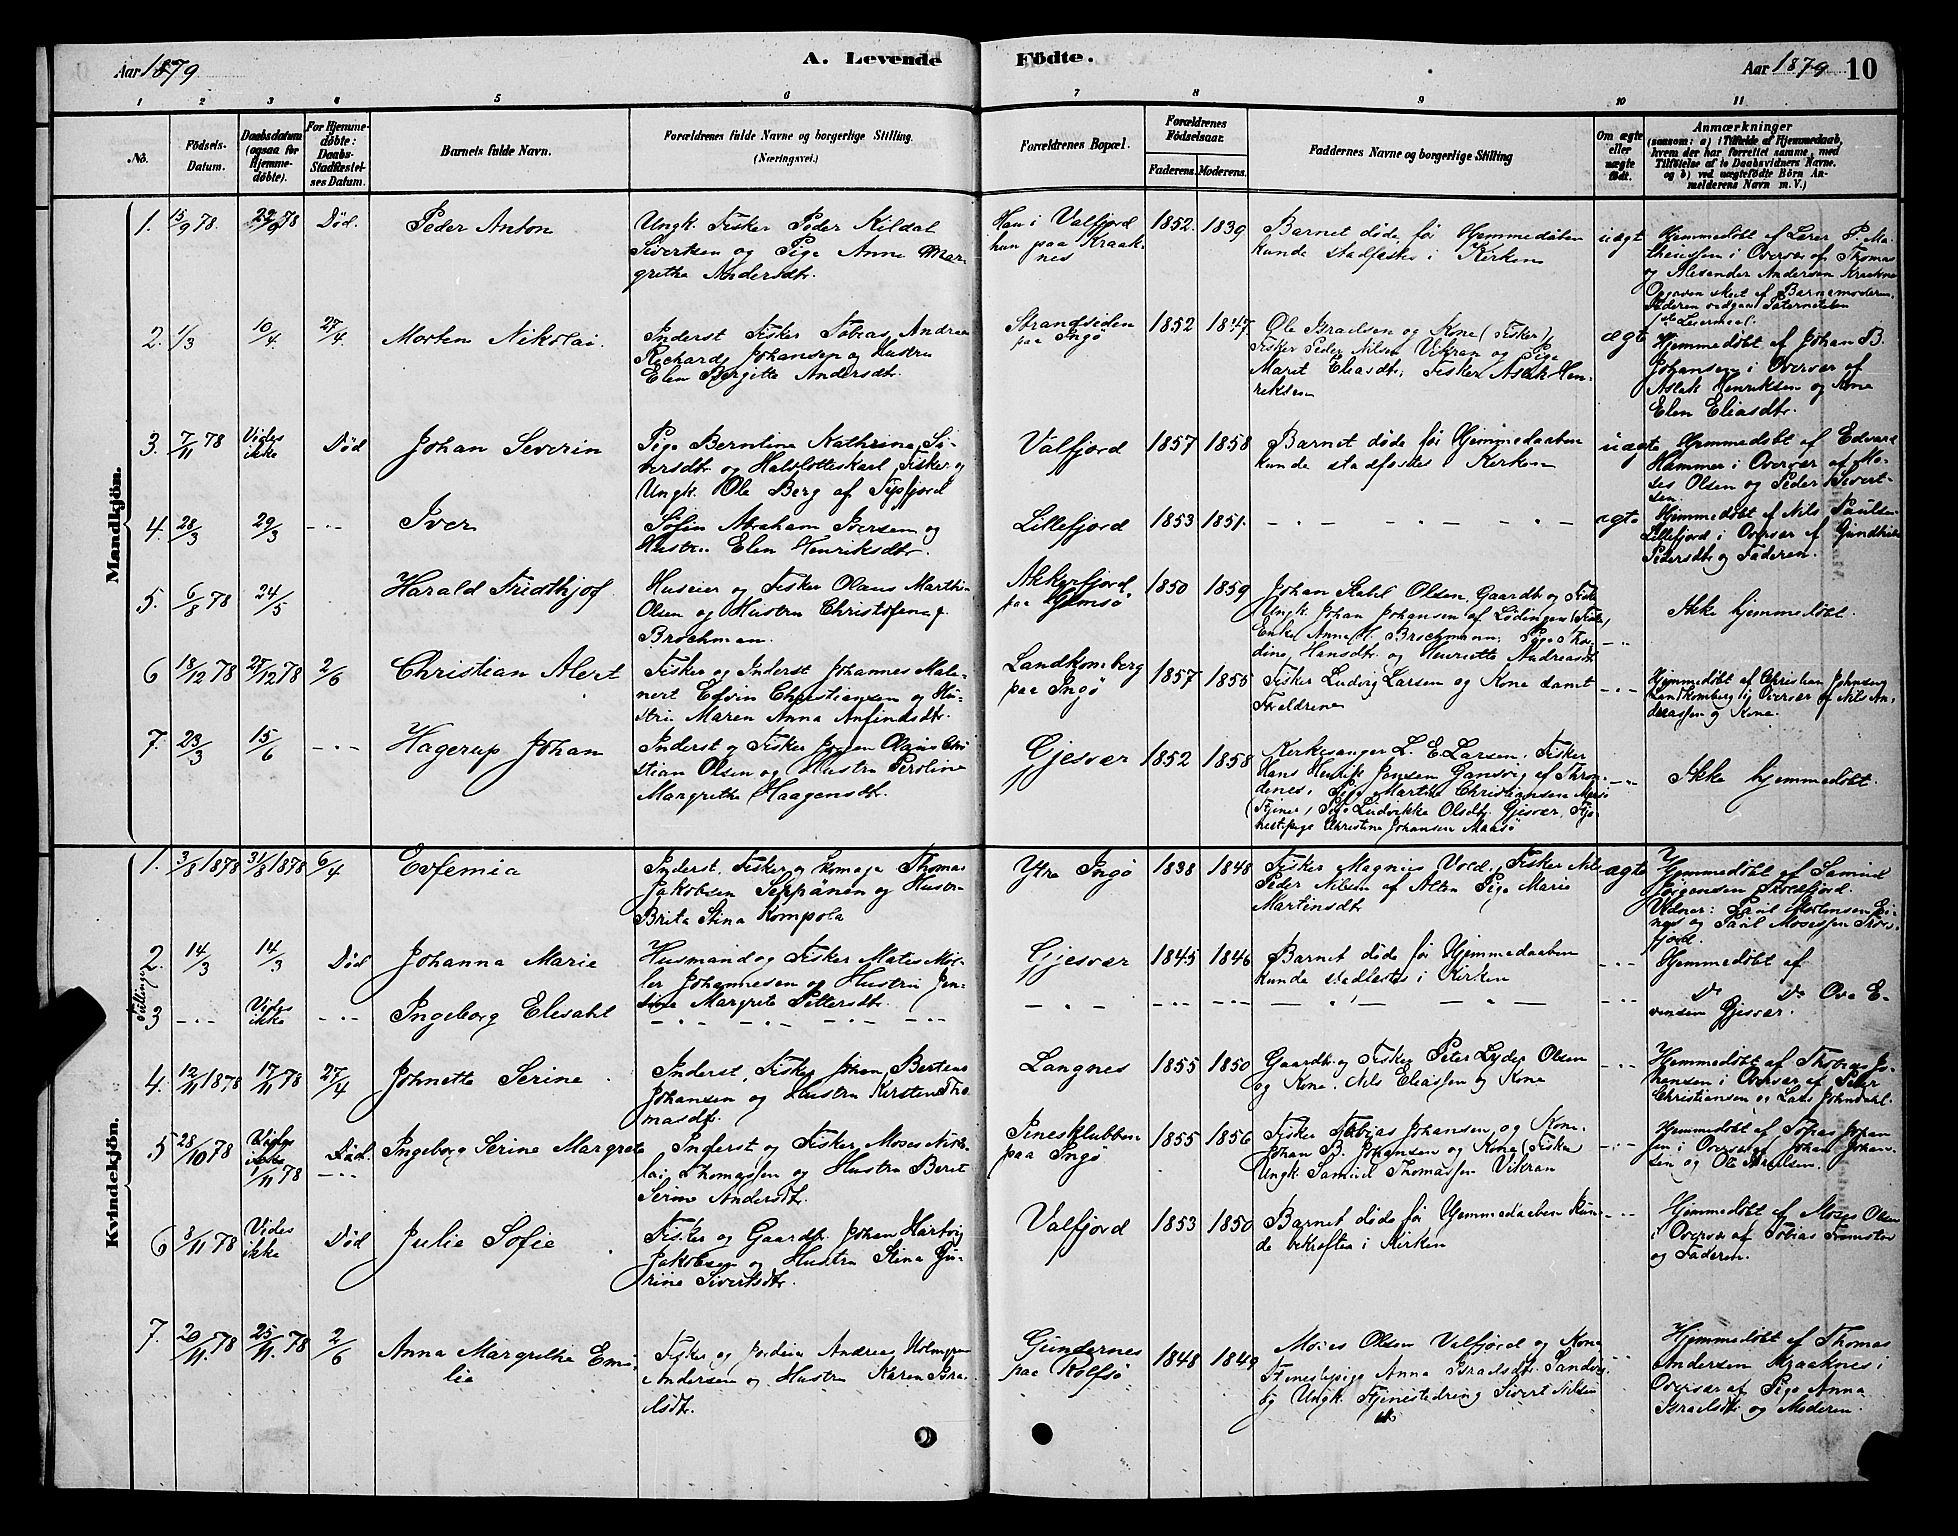 Aar 1879
A. Levende
Födte.
Aar 1879 10
1 2 3 4 5 6 7 8 9 10 11
No.
Födsels-
Datum.
Daabsdatum
(ogsaa for
Hjemme-
døbte).
For Hjemme-
døbte:
Daabs-
Stadfæstel-
ses Datum.
Barnets fulde Navn.
Forældrenes fulde Navne og borgerlige Stilling.
(Næringsvei.)
Forældrenes Bopæl.
Forældrenes
Födselsaar.
Faderens. Moderens.
Faddernes Navne og borgerlige Stilling
Om ægte
eller
uægte
födt.
Anmærkninger
(saasom: a) i Tilfælde af Hjemmedaab,
hvem der har forrettet samme, med
Tilföielse af to Daabsvidners Navne,
og b) ved uægtefödte Börn An-
melderens Navn m. V.)
Mandkjön.
1. 15/9 78. 22/9 78 Död. Peder Anton
Ungk. Fisker Peder Kildal
Sivertsen og Pige Anne Mar-
grethe Andersdtr.
Han i Valfjord
hun paa Kraak-
nes
1852. 1839
Barnet døde før Hjemmedåben
kunde stadfæstes i Kirken
uægt
Hjemmedøbt af Lærer P. Ma-
theussen i Overvær af Thomas
og Alexander Andersen Kraaknes
Opgaven skeet af Barnemoderen,
2. 1/3 10/4 27/4. Morten Nikolai.
Inderst Fisker Tobias Andreas
Richard Johansen og Hustru
Elen Bergitte Andersdtr.
Strandsiden
paa Ingø
1852 1847
Ole Israelsen og Kone (Fisker)
Fisker Peder Nilsen Vikran og Pige
Maret Eliasdtr, Fisker Aslak Hen-
riksen
ægte
Hjemmedøbt af Johan B.
Johansen i Overvær af
Aslak Henriksen og Kone
Elen Eliasdtr.
3. 7/11 78 Vides
ikke
Död Johan Severin
Pige Berntine Kathrine Si-
versdtr og Halvlotteskarl, Fisker og
Ungk. Ole Berg af Fipfjord
Valfjord 1857 1858
Barnet døde før Hjemmedaaben
kunde stadfæstes i Kirken
uægte
Hjemmedøbt af Edvard
Hammer i Overvær af Mo-
ses Olsen og Peder Sivert-
sen.
4. 28/3 29/3 - " - Iver
Søfin Abraham Iversen og
Hustru Elen Henriksdtr.
Lillefjord 1853 1851.
ægte
Hjemmedøbt af Nils Paulsen
Lillefjord i Overvær af Gundhild
Pedersdtr og Faderen.
5. 6/8 78 24/5 Harald Fridthjof
Huseier og Fisker Olaus Marthin
Olsen og Hustru Christofine f.
Brochman.
Akkerfjord
paa Sömsö
1850 1859
Johan Kahl Olsen, Gaardb. og Fisker
Ungk. Johan Johansen af Lödingen (Fisker)
Enke Anne C. Brochmann; Pige Tho-
dine Hansdtr og Henriette Andreasdtr
- " -
Ikke hjemmedøbt.
6 18/12 78 27/12 78 2/6 Christian Alert
Fisker og Inderst Johannes Male-
nert Edvin Christiansen og Hu-
stru Maren Anna Anfindsdtr.
Landkomberg
paa Ingø
1857 1855
Fisker Ludvig Larsen og Kone samt
Foreldrene
- " -
Hjemmedøbt af Christian Johnsen
Landkomberg i Overvær af Nils An-
dreassen og Kone.
7. 23/3 15/6 - " - Hagerup Johan
Inderst og Fisker Jörgen Olaus Chri-
stian Olsen og Hustru Peroline
Margrethe Haagensdtr.
Gjesvær 1852 1858
Kirkesanger L. E. Larsen. Fisker
Hans Henrik Jensen Gansvig af Thron-
denes, Pige Martha Christiansen Maasø
(Tjener), Pige Ludvikke Olsdtr. Gjesvær, Tje-
nestepige Christine Johansen Maasø
- " -
Ikke hjemmedøbt.
Kvindekjön.
1. 3/8 1878 31/8 1878 6/4 Evfemia
Inderst, Fisker og Komager Thomas
Jakobsen Seppänen og Hustru
Brita Stina Kompola
Ytre Ingø 1838 1848
Fisker Magnus Vold, Fisker Nils
Peder Nilsen af Alten Pige Marie
Martinsdtr
ægte
Hjemmedøbt af Samuel
Jørgensen Troldfjord.
Vidner: Paul Mortensen Ei-
nes og Paul Mosessen Trol-
fjord.
Tvillinger
2. 14/3 14/3 Död Johanna Marie
Husmand og Fisker Mates Møl-
ler Johannesen og Hustru Jen-
sine Margrete Pettersdtr.
Gjesvær 1845 1846
Barnet døde før Hjemmedaaben
kunde stadfæstes i Kirken
- " -
Hjemmedøbt af
3 - " - Vides
ikke
- " - Ingeborg Elesabt
Do Do Ove E-
vensen Gjesvær.
4. 12/11 1878 17/11 78 27/4 Johnette Serine
Inderst, Fisker Johan Berteus
Johansen og Hustru Kirstene Tho-
masdtr.
Langnes 1855 1850
Gaardb. og Fisker Peter Lyder Olsen
og Kone, Nils Eliassen og Kone
- " -
Hjemmedøbt af Thomas Jo-
hansen i Overvær af Peter
Christiansen og Lars Johndahl.
5 28/10 78 Vides
ikke
1/11 78
Död. Ingeborg Serine Margrete
Inderst og Fisker Moses Niko-
lai Thomassen og Hustru Beret
Serine Andersdtr.
Finesklubben
paa Ingø
1855 1856
Fisker Tobias Johansen og Kone
Johan B. Johansen og Kone (Fisker
Ungk. Samuel Thomassen Vikran
- " -
Hjemmedøbt af Tobias Johan-
sen i Overvær af Johan Johan-
sen og Ole Israelsen.
6 8/11 78 Vides
ikke
Död Julie Sofie
Fisker og Gaardb. Johan Hartvig
Jakobsen og Hustru Stina Gu-
rine Sivertsdtr.
Valfjord 1853 1850
Barnet døde før Hjemmedaaben kun-
de bekræftes i Kirken
- " -
Hjemmedøbt af Moses Olsen
i Overvær af Tobias Tomsten
og Faderen.
7. 20/11. 78 25/11. 78 2/6 Anna Margrethe Emi-
lie
Fisker og Jordeier Andreas Holmgren
Andersen og Hustru Karen Isra-
elsdtr.
Gundernes
paa Rolfsö
1848 1849
Moses Olsen Valfjord og Kone
Tjenestepige Anna Israelsdtr. Sandøe
og Ungk. Tjenestedreng Sivert Nielsen
Hjemmedøbt af Thomas
Andersen Kraaknes i
Overvær af Pige Anna
Israelsdtr og Moderen.